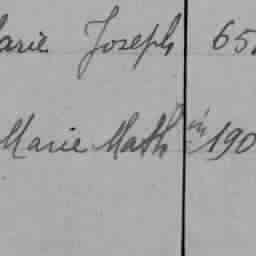 arie Joseph 65
Marie Math in 190